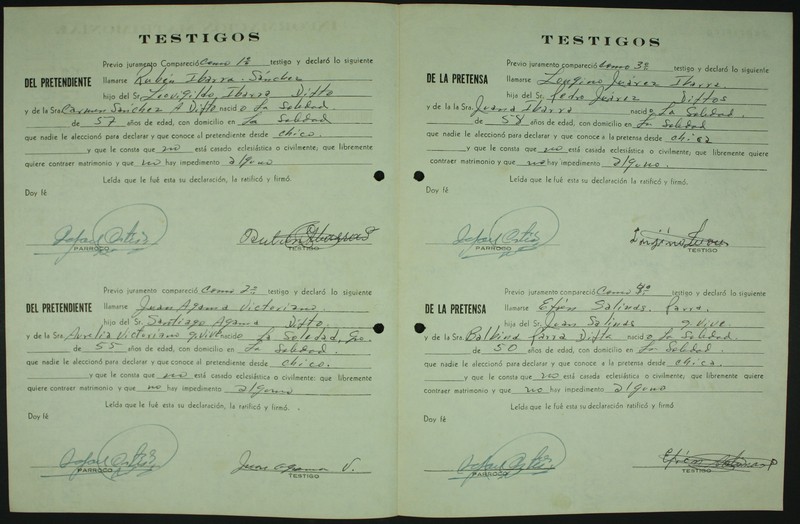 TESTIGOS
Previo juramento Compareció Como 1º testigo y declaró lo siguiente
DEL PRETENDIENTE llamarse Rubén Ibarra Sánchez
hijo del Sr. Leovigildo Ibarra Difto
y de la Sra. Carmen Sánchez A Difto nacido La Soledad
de 57 años de edad, con domicilio en La Soledad
que nadie le aleccionó para declarar y que conoce al pretendiente desde chico.
y que le consta que no está casado eclesiástica o civilmente; que libremente
quiere contraer matrimonio y que no hay impedimento alguno
Leída que le fué esta su declaración, la ratificó y firmó.
Doy fé
Rafael Ortiz
PARROCO TESTIGO
Previo juramento compareció Como 2º testigo y declaró lo siguiente
DEL PRETENDIENTE llamarse Juan Agama Victoriano.
hijo del Sr. Santiago Agama Difto.
y de la Sra. Aurelia Victoriano q. vive nacido La Soledad, Gro.
de 55 años de edad, con domicilio en La Soledad.
que nadie le aleccionó para declarar y que conoce al pretendiente desde chico.
y que le consta que no está casado eclesiástica o civilmente: que libremente
quiere contraer matrimonio y que no hay impedimento alguno
Leída que le fué esta su declaración, la ratificó y firmó.
Doy fé
Rafael Ortiz Juan Agama V.
PARROCO TESTIGO
TESTIGOS
Previo juramento compareció Como 3º testigo y declaró lo siguiente
DE LA PRETENSA llamarse Longino Juárez Ibarra
hijo del Sr. Pedro Juárez Diftos
y de la Sra. Juana Ibarra nacido La Soledad.
de 58 años de edad, con domicilio en La Soledad
que nadie le aleccionó para declarar y que conoce a la pretensa desde chica
y que le consta que no está casada eclesiástica o civilmente; que libremente quiere
contraer matrimonio y que no hay impedimento alguno.
Leída que le fué esta su declaración, la ratificó y firmó.
Doy fé
Rafael Ortiz
PARROCO TESTIGO
Previo juramento compareció Como 4º testigo y declaró lo siguiente
DE LA PRETENSA llamarse Efrén Salinas Parra.
hijo del Sr. Juan Salinas q. vive.
y de la Sra. Balbina Parra Difta nacido La Soledad.
de 50 años de edad, con domicilio en La Soledad.
que nadie le aleccionó para declarar y que conoce a la pretensa desde chica.
y que le consta que no está casada eclesiástica o civilmente: que libremente quiere
contraer matrimonio y que no hay impedimento alguno
Leída que le fué esta su declaración, la ratificó y firmó.
Doy fé
Rafael Ortiz
PARROCO TESTIGO